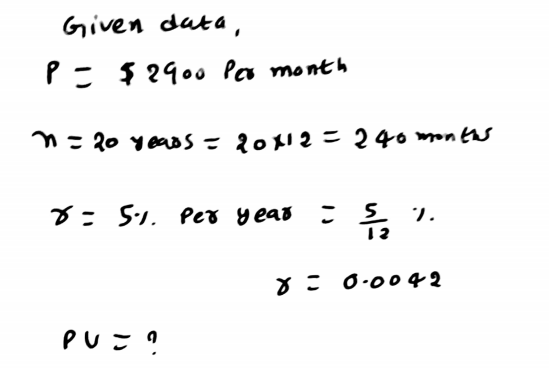 Given data,
P = $ 2900 Per month
n = 20 years = 20x12 = 240 months
r = 5%. Per year = 5/12 %.
r = 0.0042
PV = ?